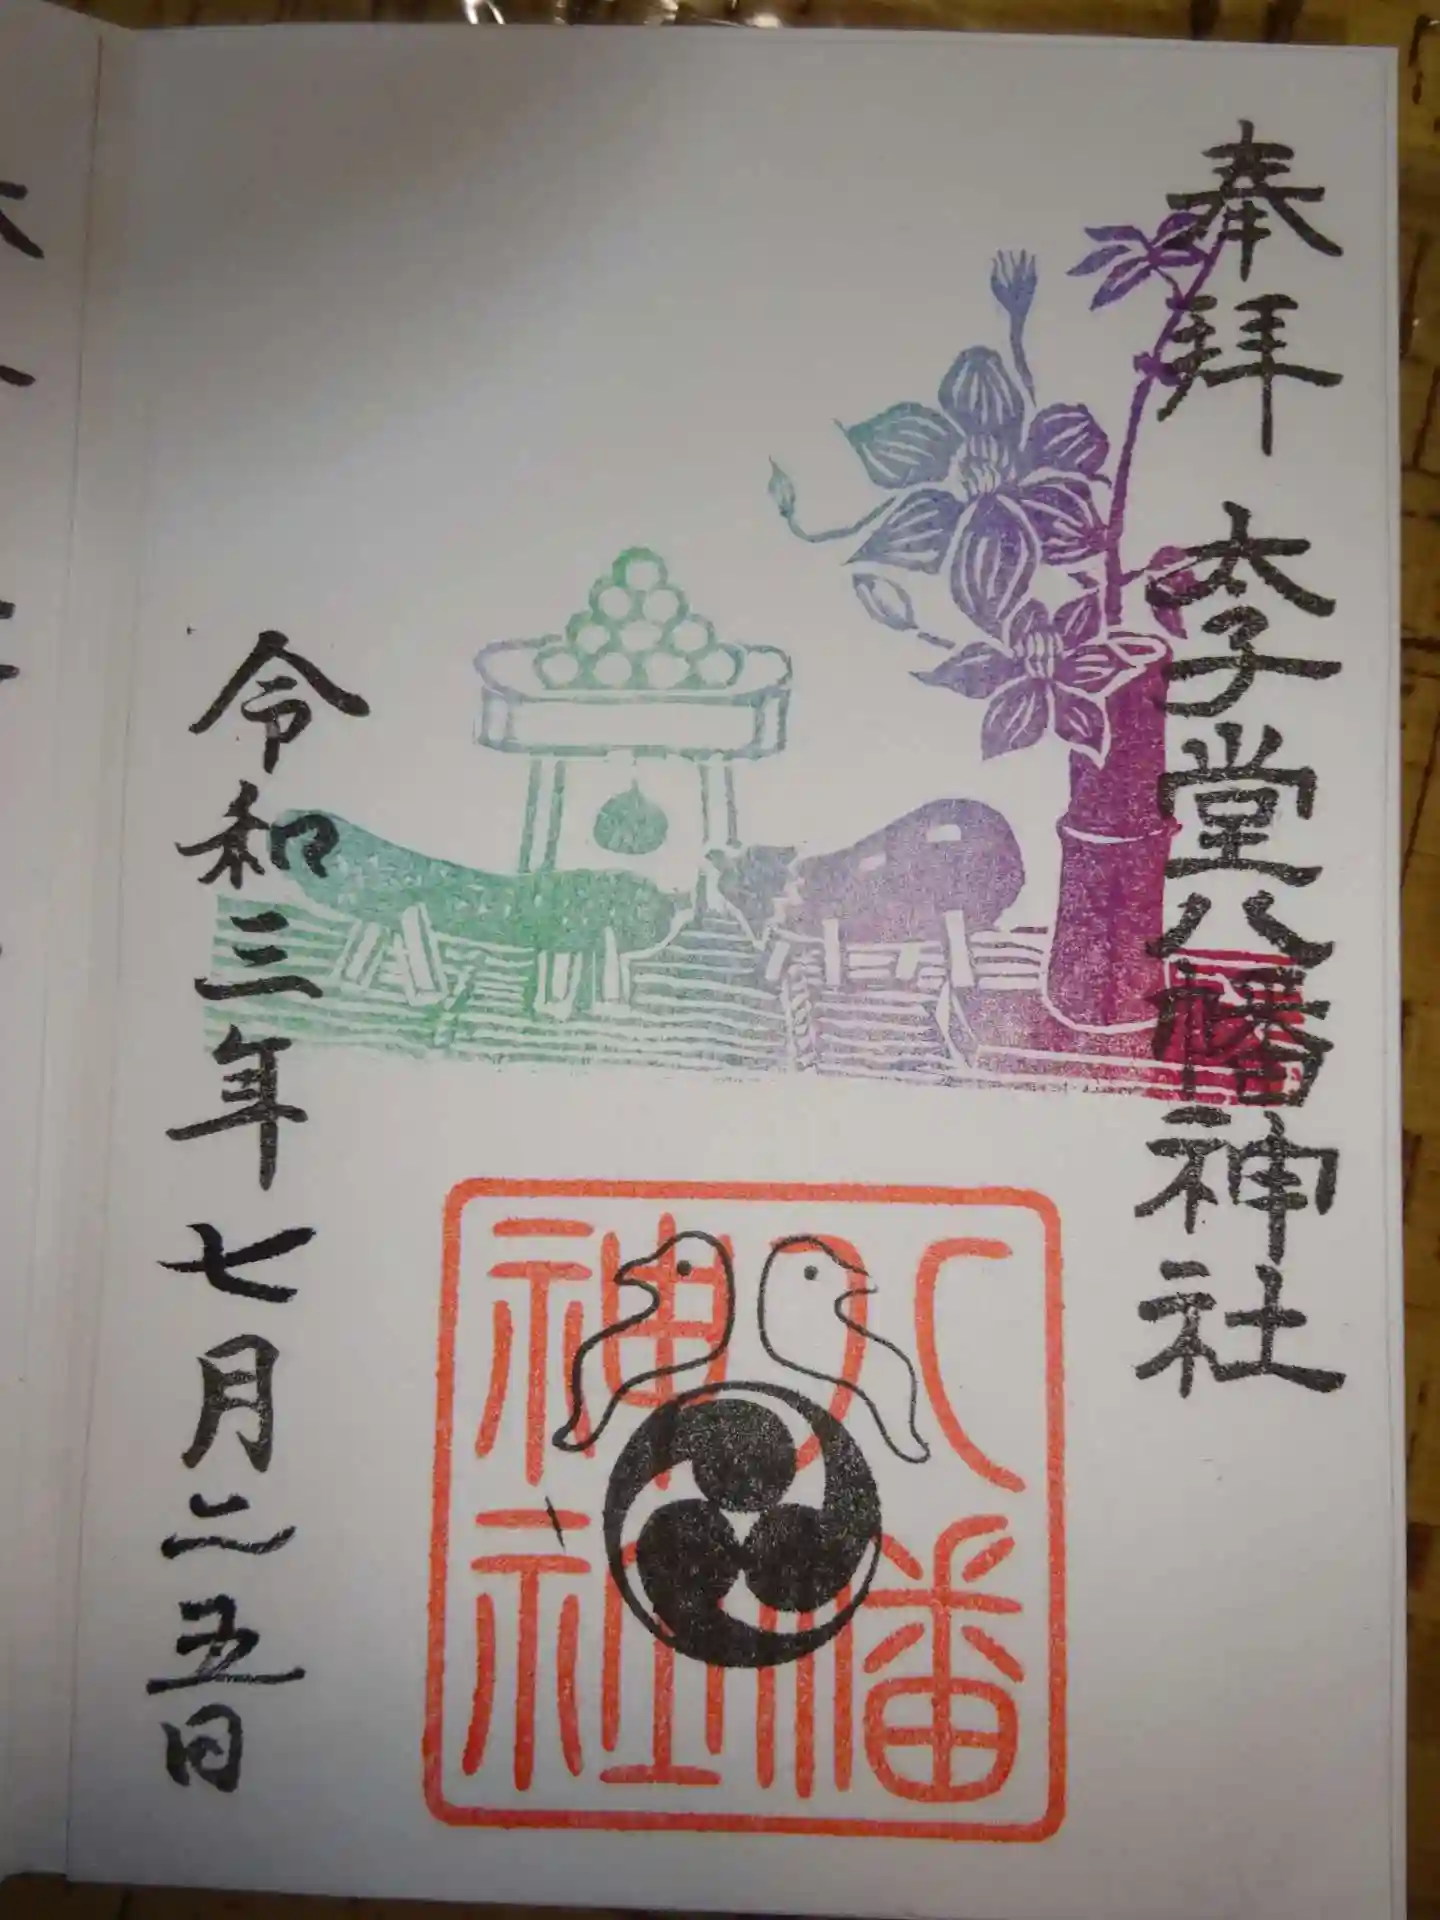 奉拝 太子堂八幡神社
八幡
神社
令和三年七月二五日